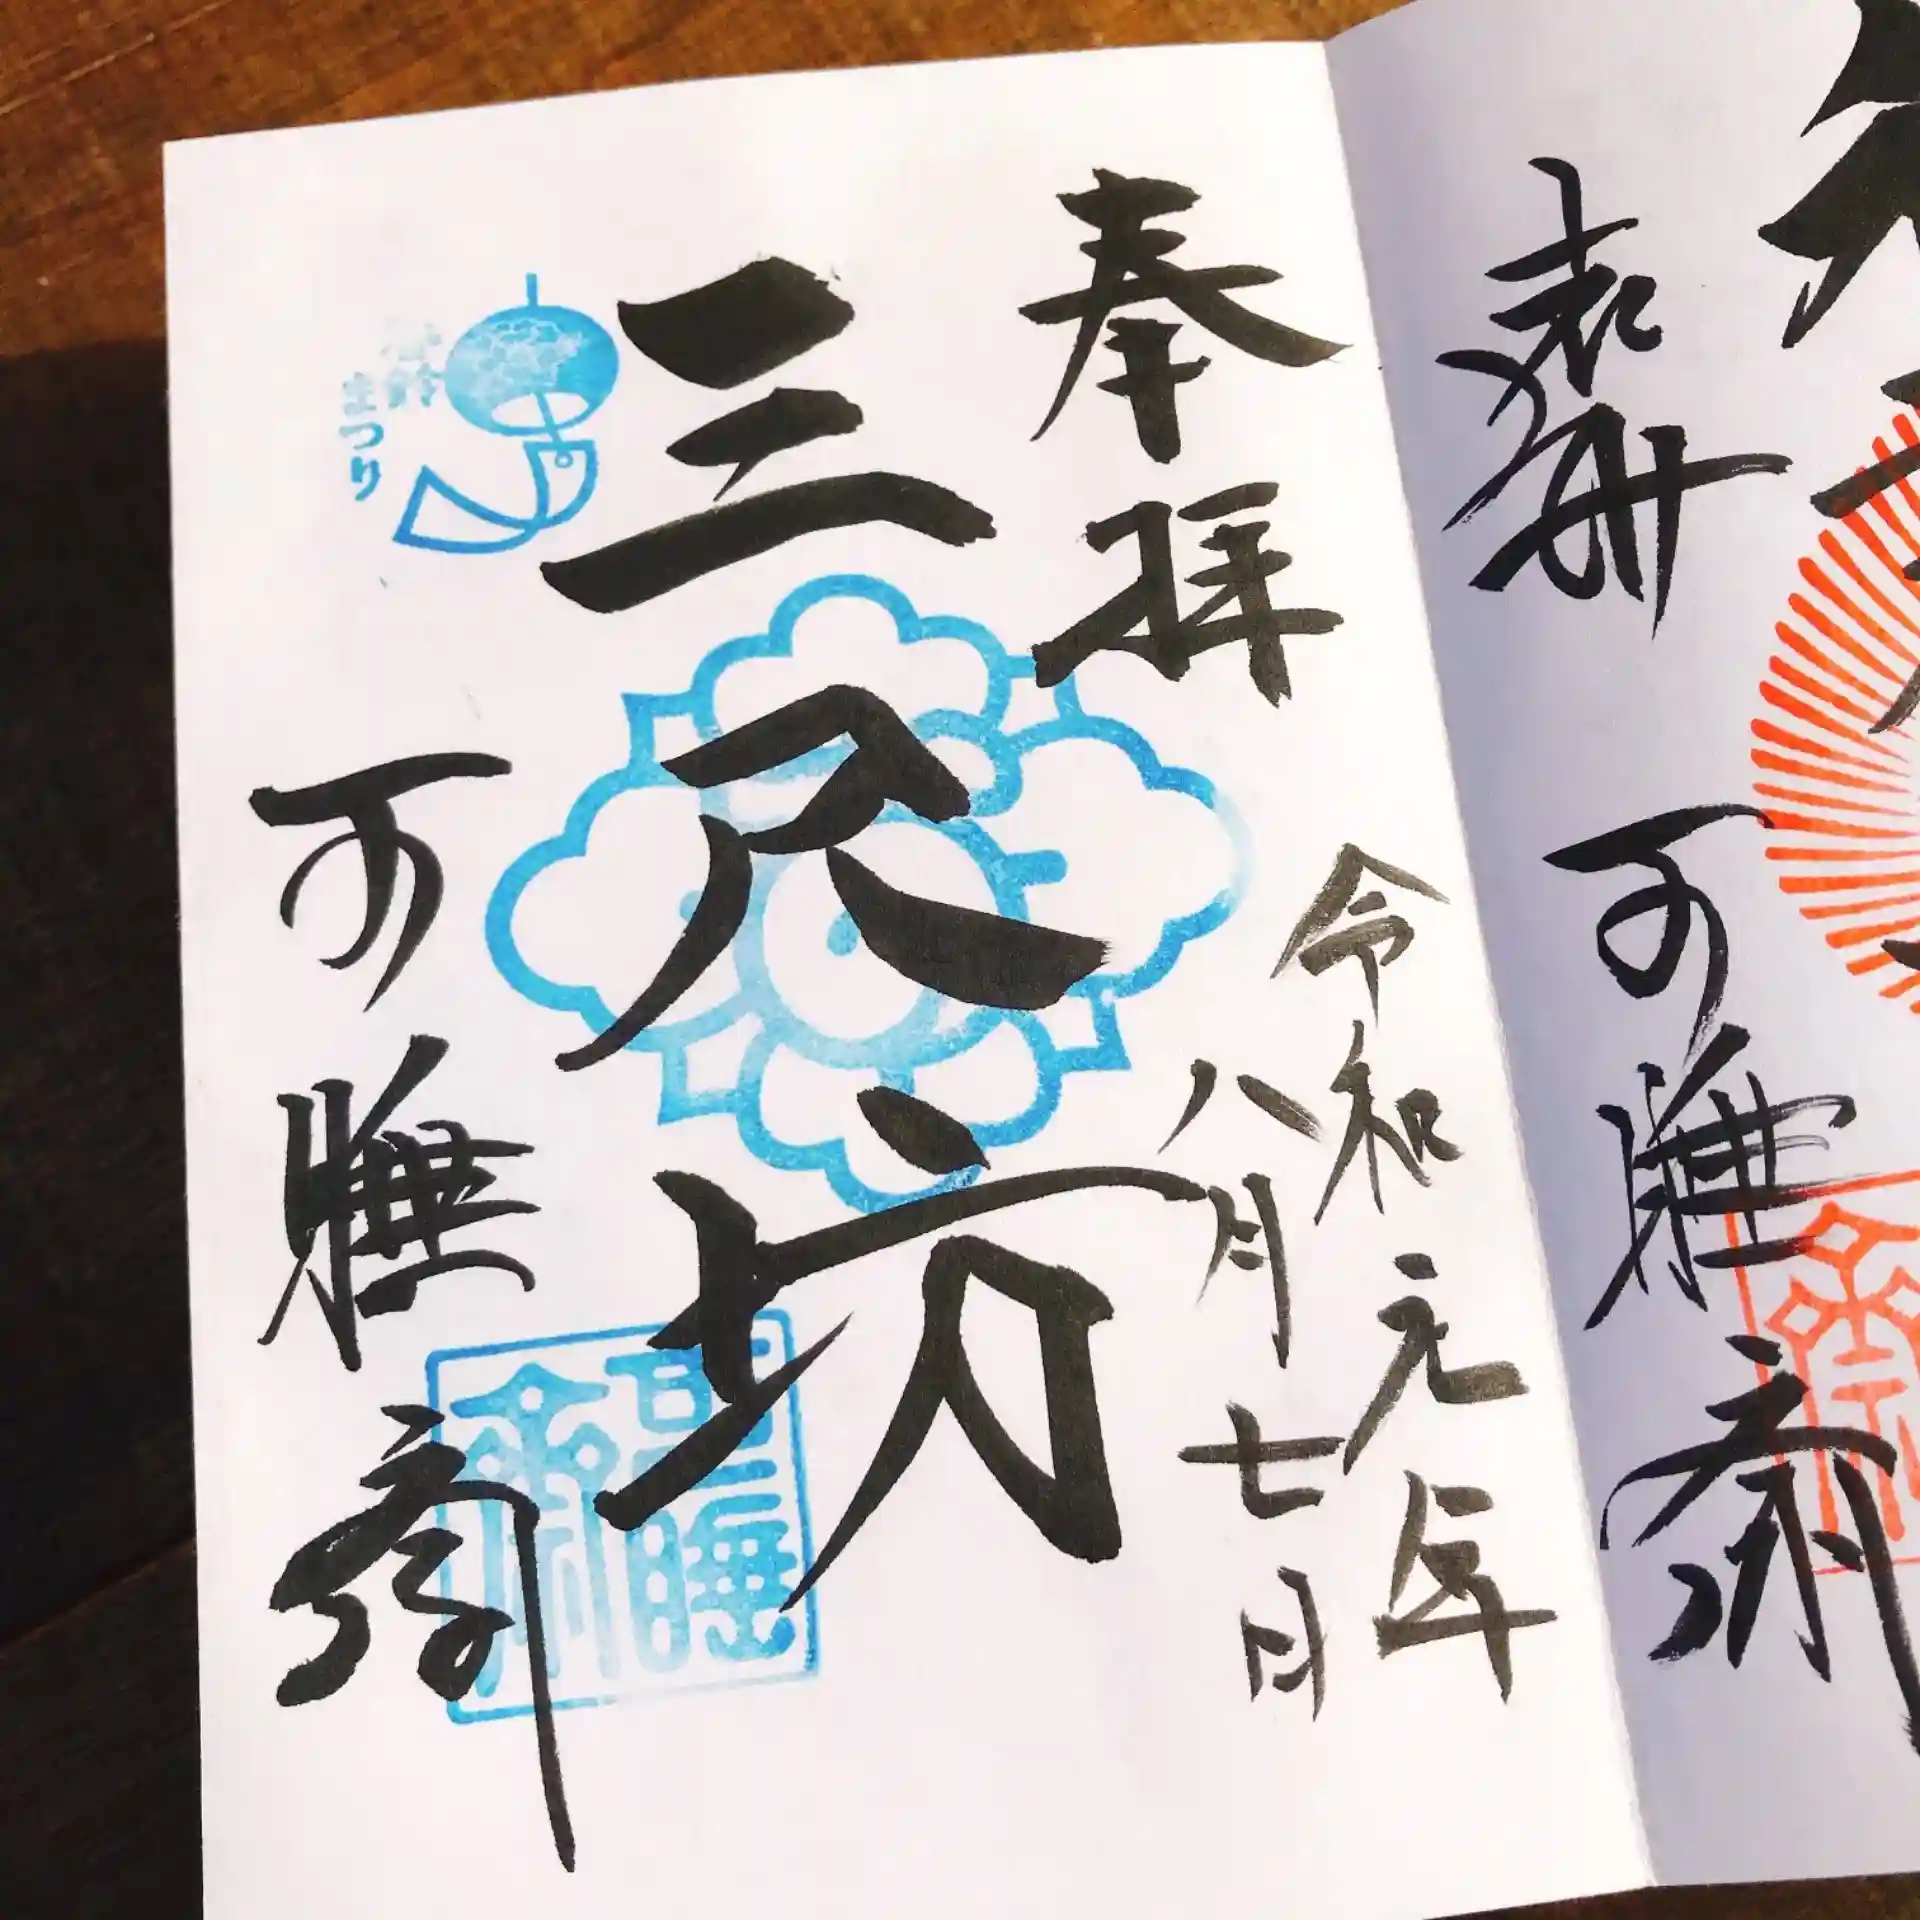 遠州
可睡斎
奉拝
令和元年
八月七日
三尺坊
風鈴
まつり
可睡斎